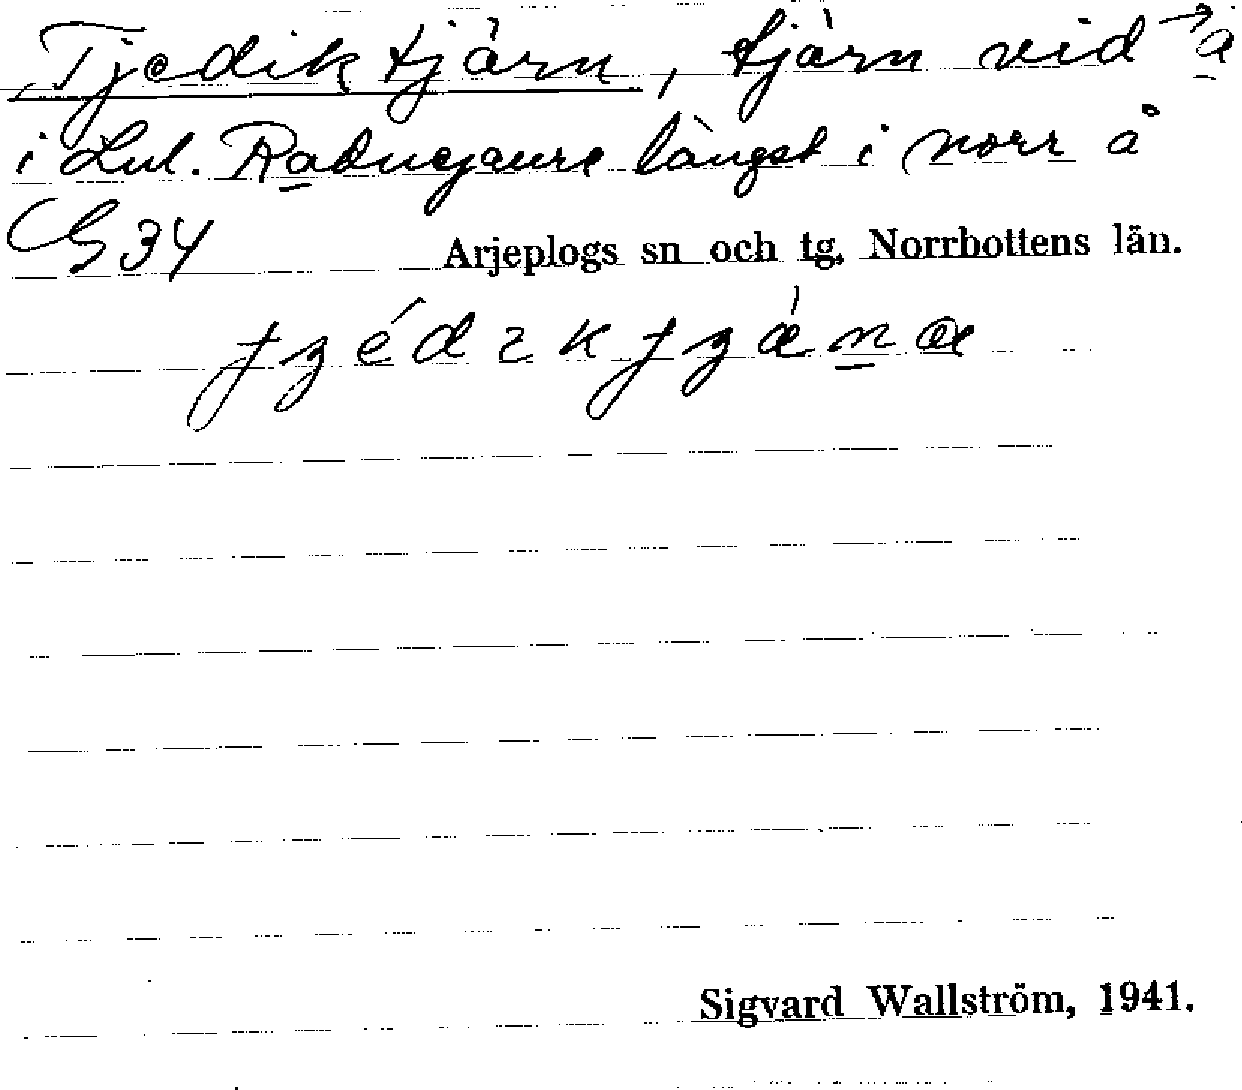 Tjediktjärn, tjärn vid → å
i Lul. Raduejaure längst i norr å
G 34
Arjeplogs sn och tg. Norrbottens län.
Sigvard Wallström, 1941.